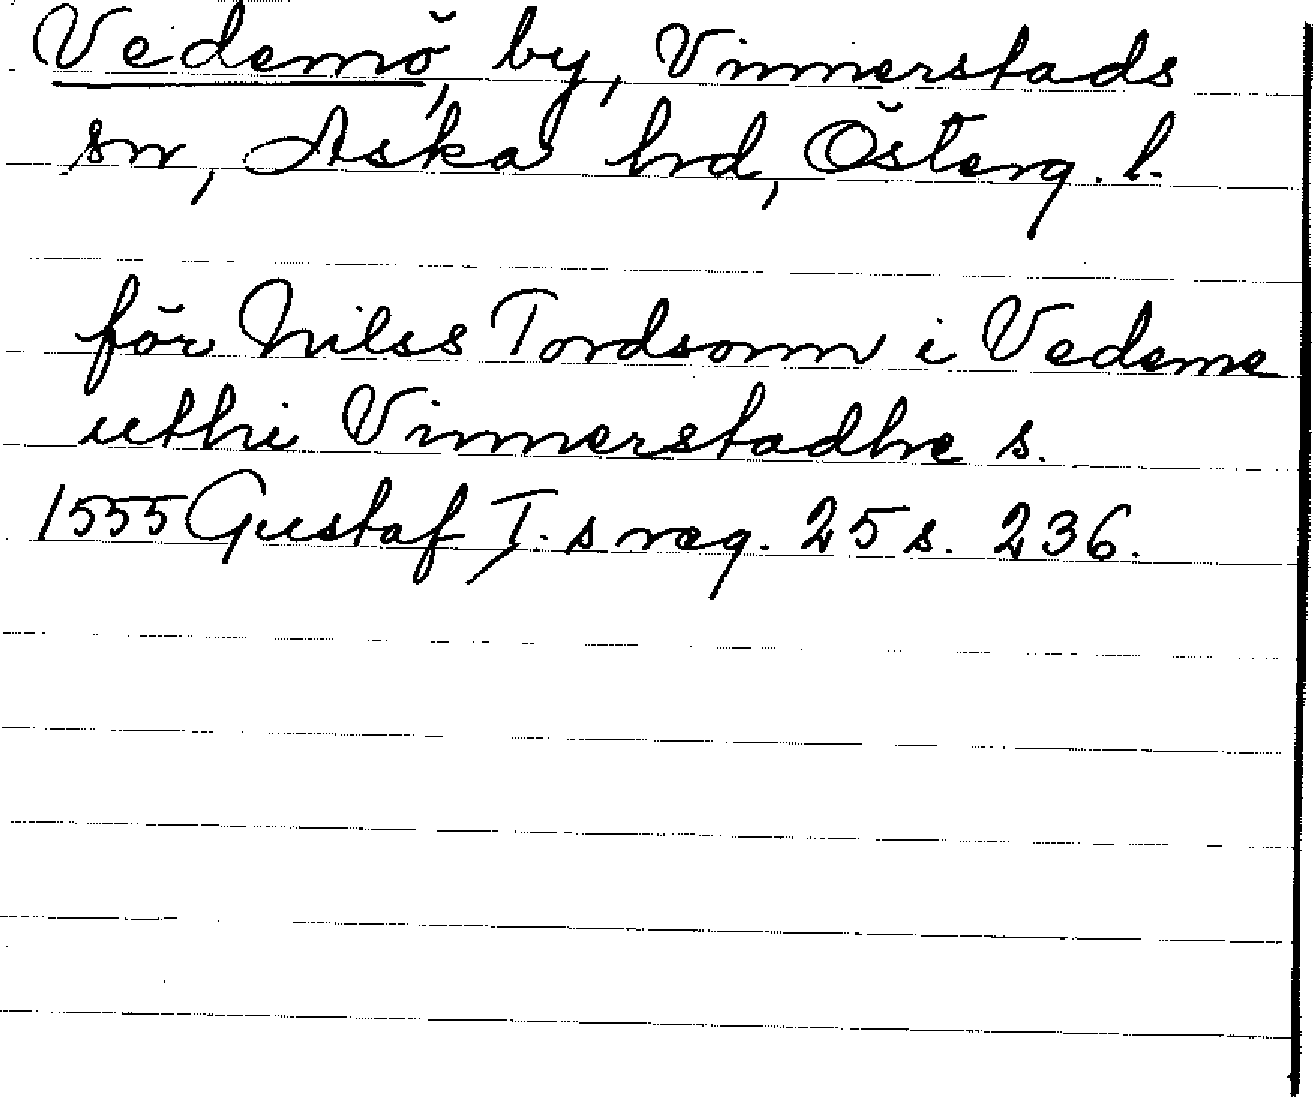 Vedemö, by, Vinnerstads
sn, Aska hrd, Österg. l.
för Nilss Tordsonn i Vedeme
uthi Vinnerstadhe s.
1555 Gustaf I.s reg. 25 s. 236.